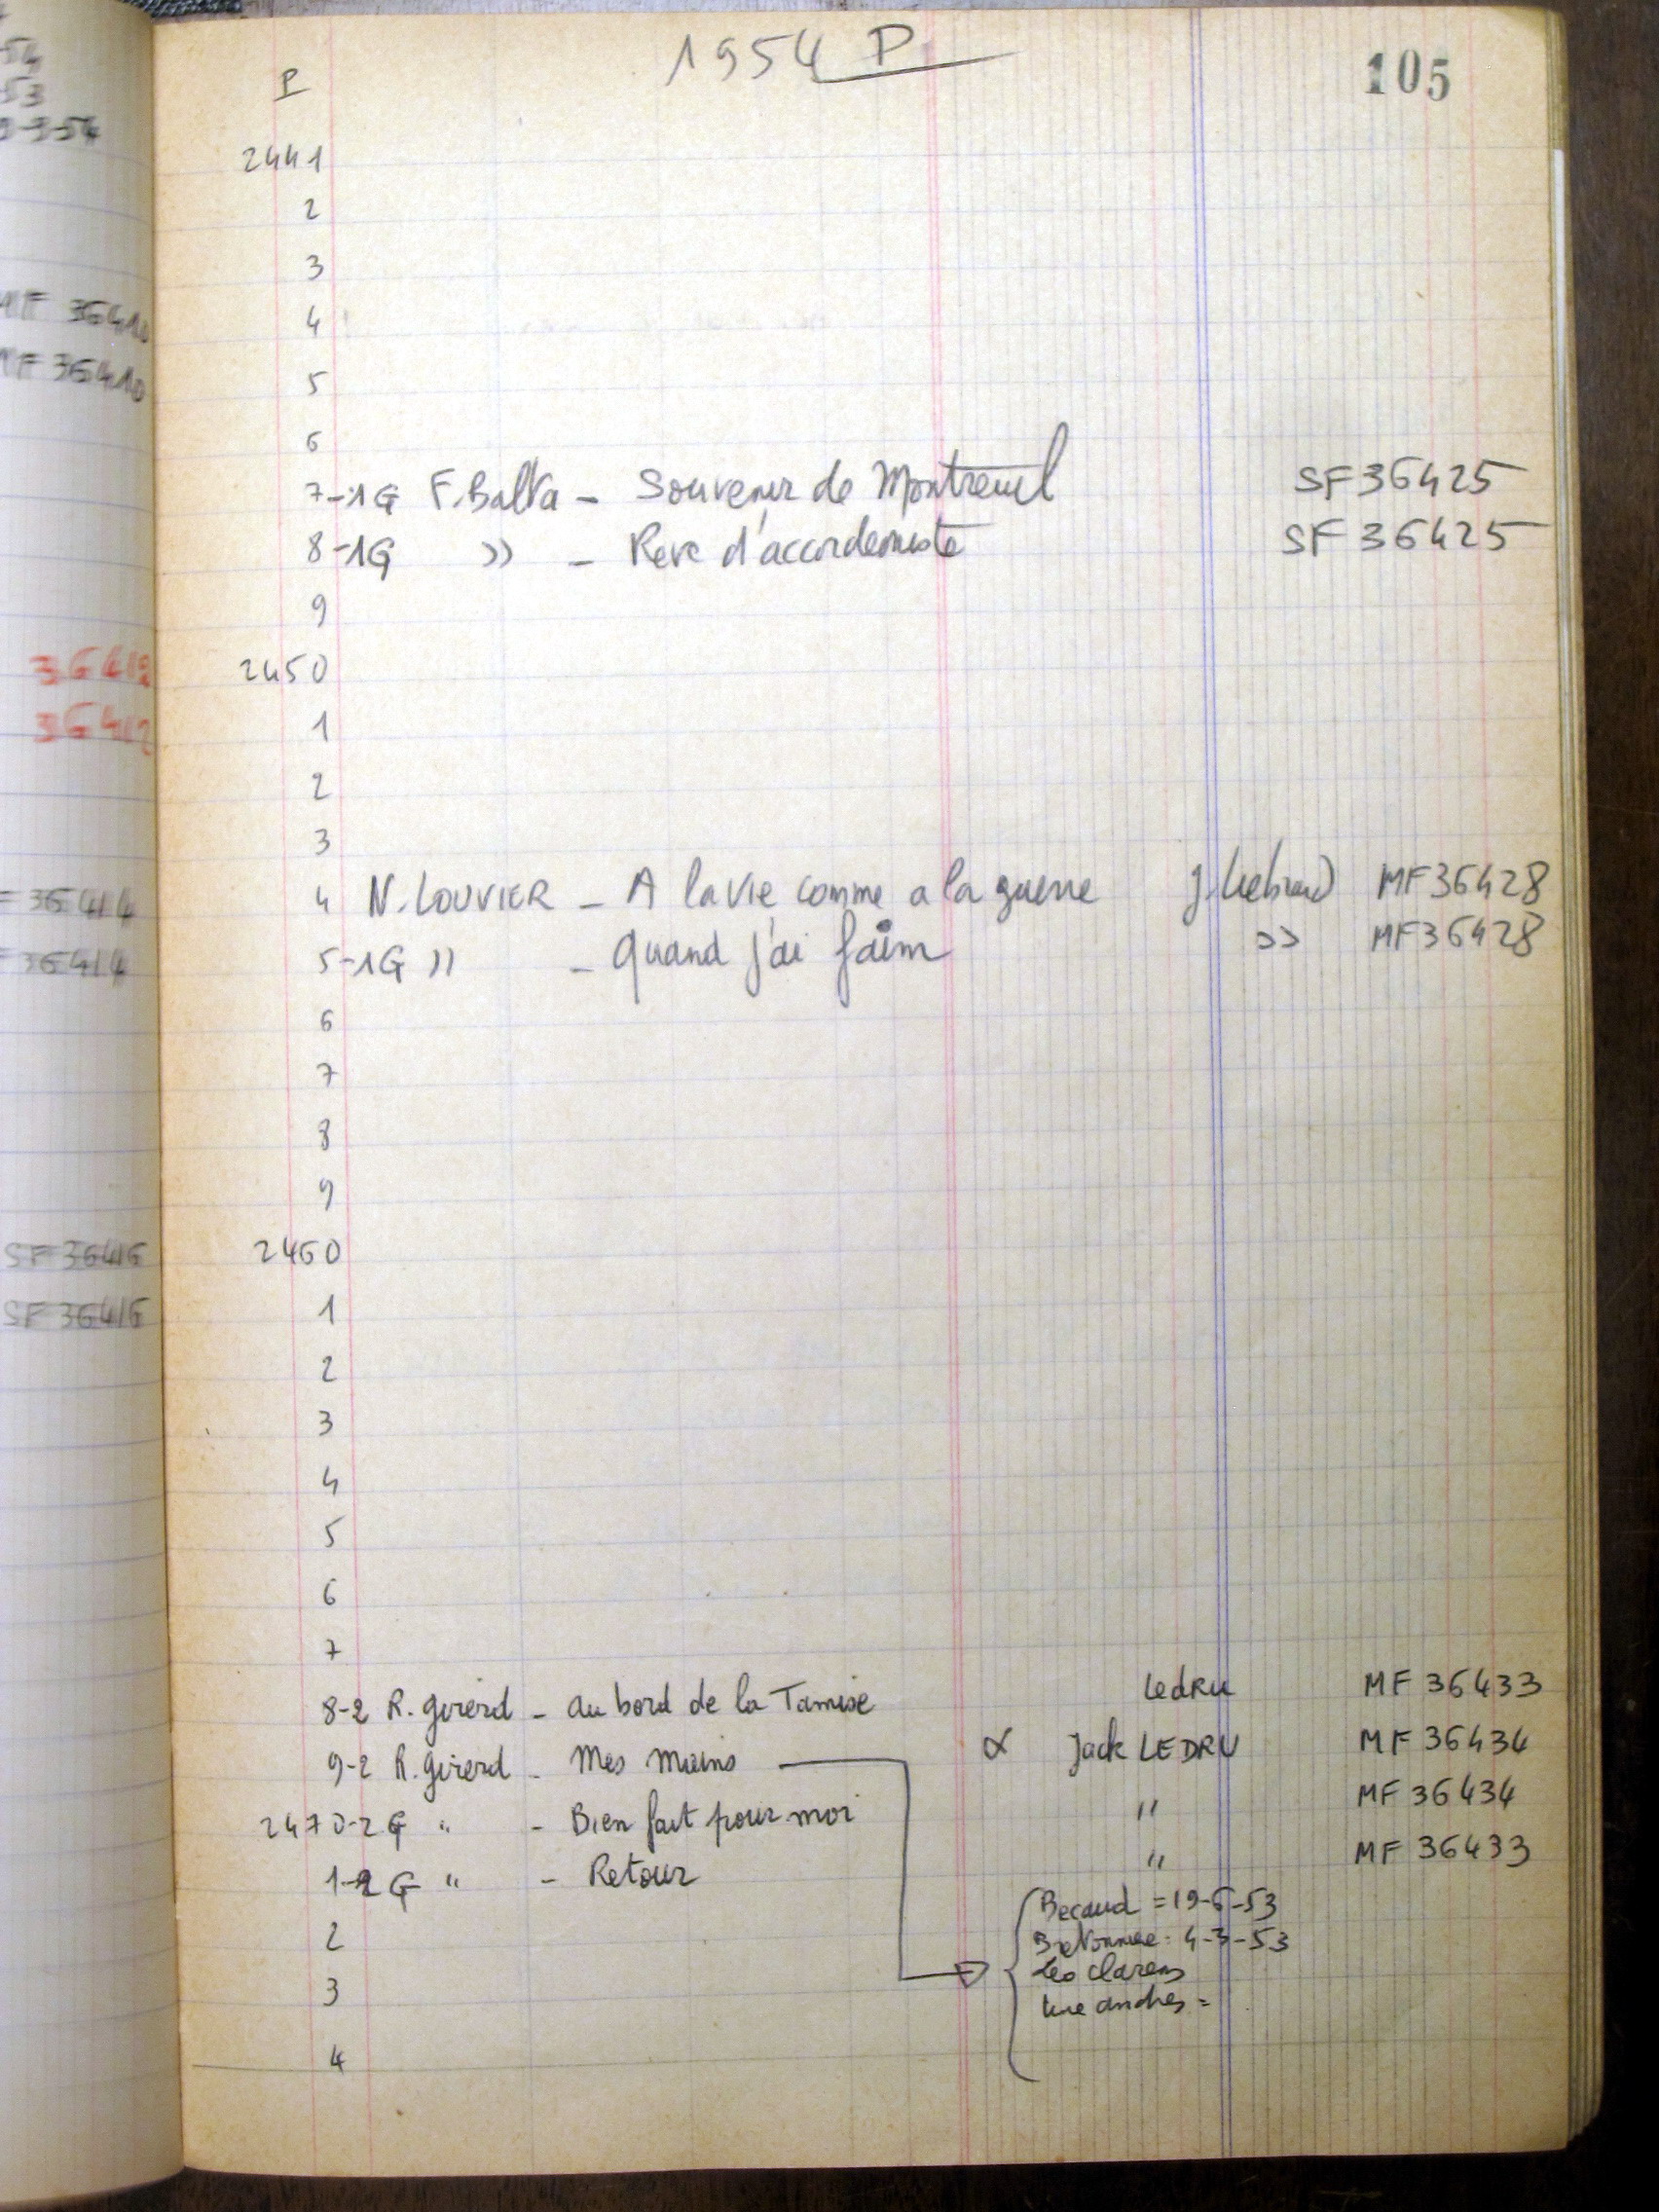 54
53
9-9-54
MF 36410
MF 36410
36412
36412
36414
36414
SF 36416
SF 36416
1954 P
105
P
2441
2
3
4
5
6
7-1G F. Balta - Souvenir de Montreuil SF36425
8-1G » - Reve d'accordeoniste SF36425
9
2450
1
2
3
4 N. LOUVIER - A la vie comme a la guerre J. MF36428
5-1G » - Quand j'ai faim » MF36428
6
7
8
9
2460
1
2
3
4
5
6
7
8-2 R. Girerd - Au bord de la Tamise LedRu MF 36433
9-2 R. Girerd - Mes mains α Jack LEDRU MF 36434
2470-2G " - Bien fait pour moi " MF 36434
1-2G " - Retour " MF 36433
2
Becaud = 19-6-53
Bretonniere: 4-3-53
3
Leo Clarens
Luc Andres =
4